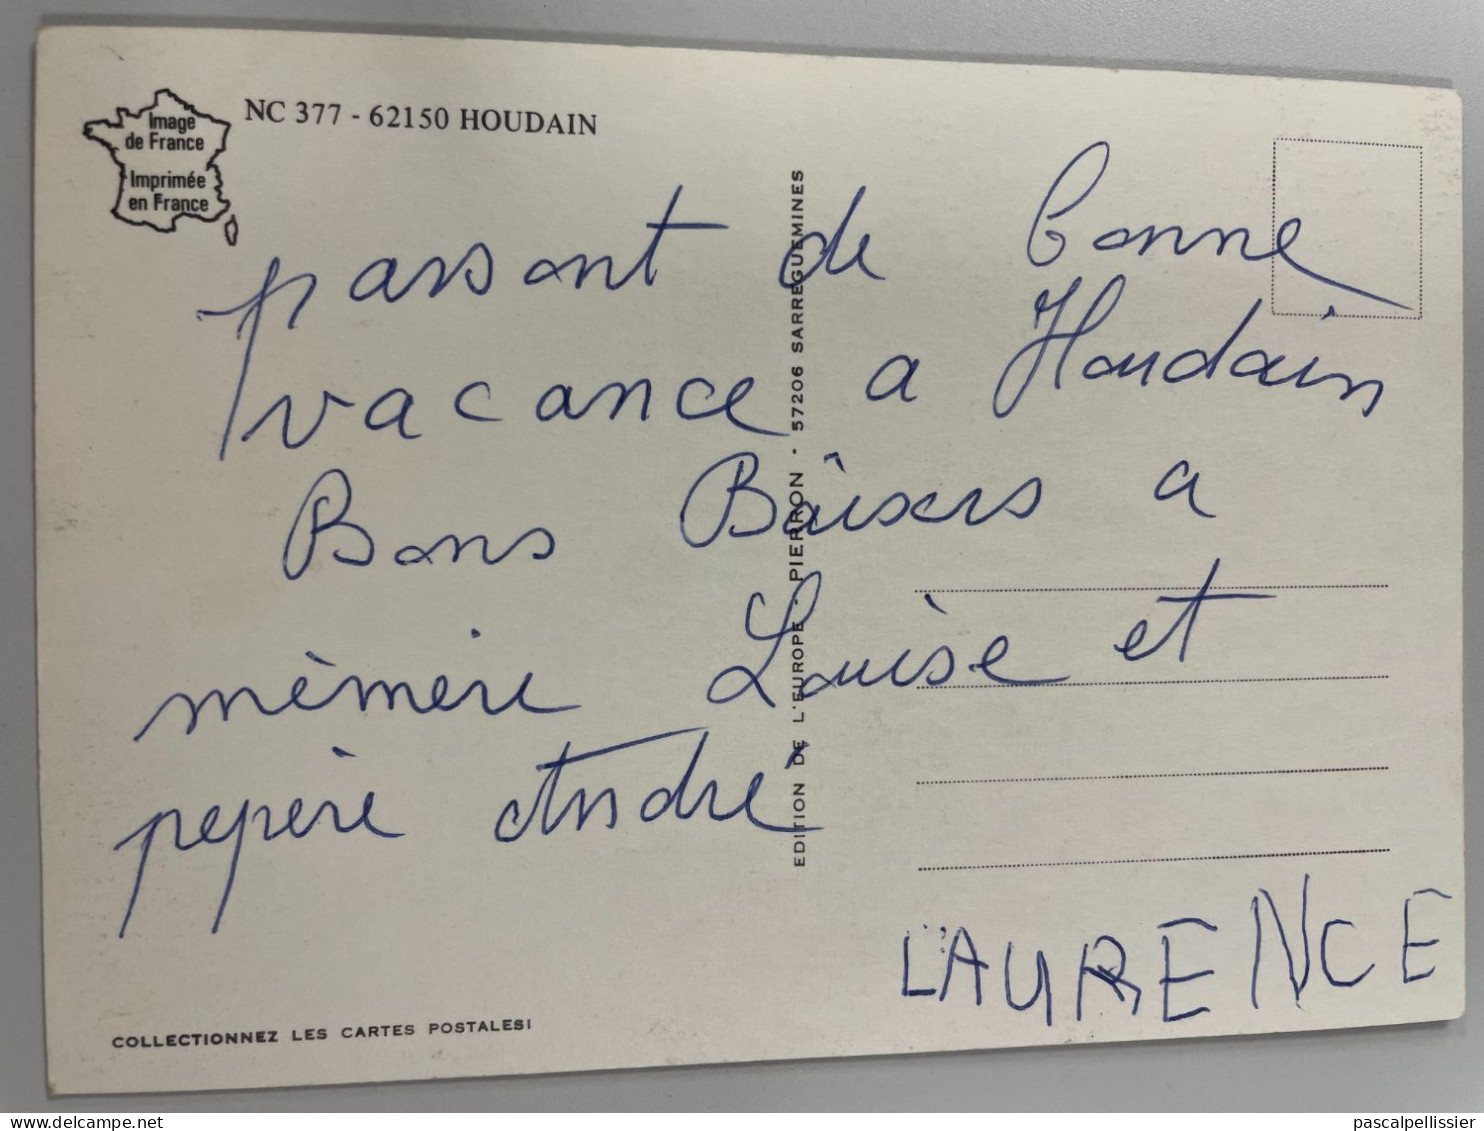 Image
de France
Imprimée
en France
NC 377 - 62150 HOUDAIN
passont de bonne
vacance a Houdain
Bons Baisers a
mèmère Louise et
pepère André
LAURENCE
EDITION DE L'EUROPE - PIERRON - 57206 SARREGUEMINES
COLLECTIONNEZ LES CARTES POSTALES!
delcampe.net
pascalpellissier